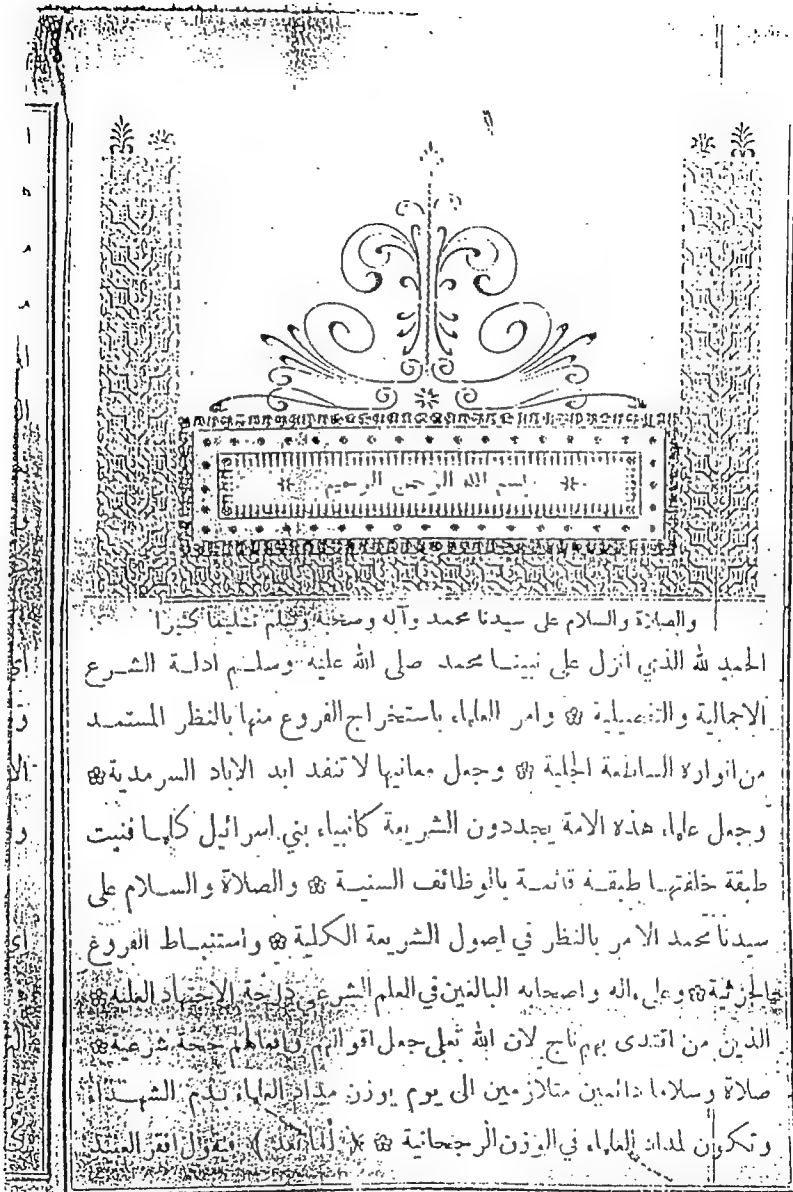 بسم الله الرحمن الرحيم
والصلاة والسلام على سيدنا محمد وآله وصحبه وسلم تسليما كثيرا
الحمد لله الذي انزل على نبينا محمد صلى الله عليه وسلم ادلة الشرع
الاجمالية والتفصيلية ۞ وامر العلماء باستخراج الفروع منها بالنظر المستمد
من انواره الساطعة الجلية ۞ وجعل معانيها لا تنفد ابد الاباد السرمدية ۞
وجعل علماء هذه الامة يجددون الشريعة كانبياء بني اسرائيل كلما فنيت
طبقة خلفتها طبقة قائمة بالوظائف السنية ۞ والصلاة والسلام على
سيدنا محمد الامر بالنظر في اصول الشريعة الكلية ۞ واستنباط الفروع
الجزئية ۞ وعلى ءاله واصحابه البالغين في العلم الشرعي درجة الاجتهاد العلية ۞
الذين من اقتدى بهم ناج لان الله تعلى جعل اقوالهم وافعالهم حجة شرعية ۞
صلاة وسلاما دائمين متلازمين الى يوم يوزن مداد العلماء بدم الشهداء
وتكون لمداد العلماء في الوزن الرجحانية ۞ ( أما بعد ) فيقول افقر العبيد